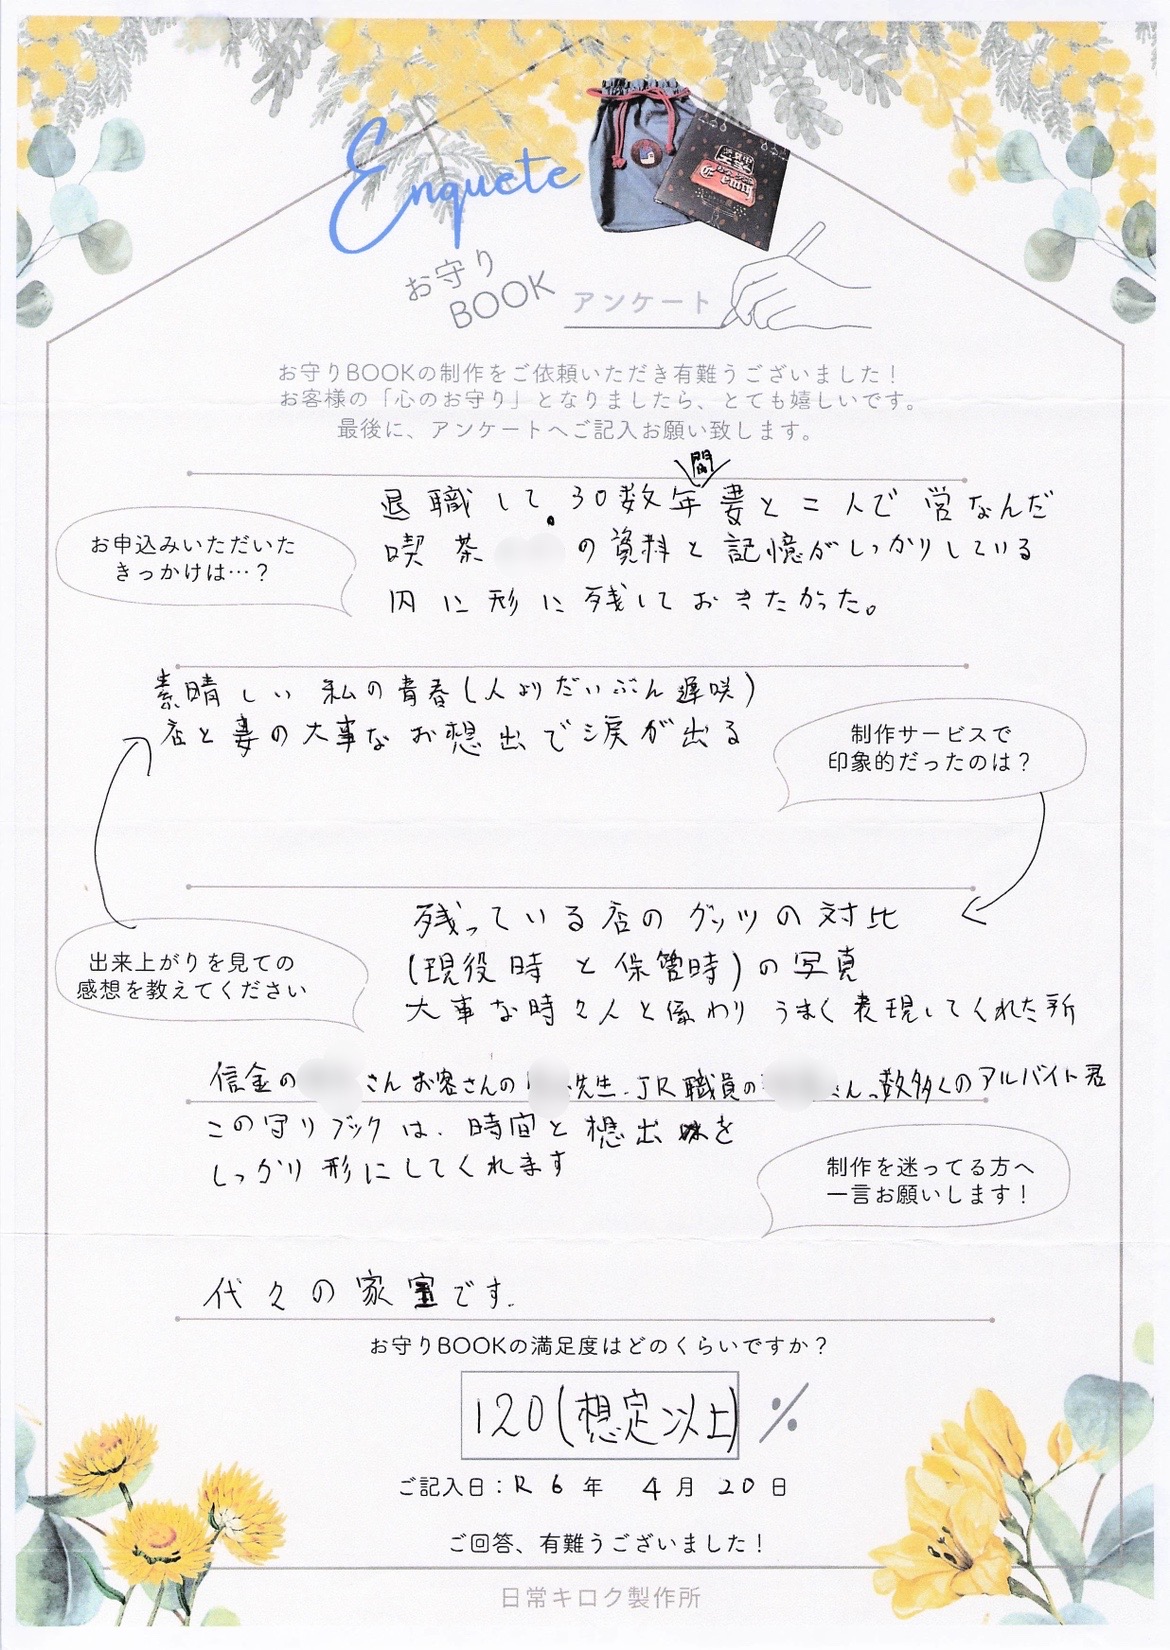 Enquete
お守り
BOOK
アンケート
お守りBOOKの制作をご依頼いただき有難うございました！
お客様の「心のお守り」となりましたら、とても嬉しいです。
最後に、アンケートへご記入お願い致します。
お申込みいただいた
きっかけは…？
退職して、30数年間妻と二人で営なんだ
喫茶 の資料と記憶がしっかりしている
内に形に残しておきたかった。
素晴しい私の青春(人よりだいぶん遅咲)
店と妻の大事なお想出で涙が出る
制作サービスで
印象的だったのは？
出来上がりを見ての
感想を教えてください
残っている店のグッツの対比
(現役時と保管時)の写真
大事な時々人と係わりうまく表現してくれた所
信金の さんお客さんの 先生.JR職員の さん、数多くのアルバイト君
この守りブックは、時間と想出を
しっかり形にしてくれます
制作を迷ってる方へ
一言お願いします！
代々の家宝です.
お守りBOOKの満足度はどのくらいですか？
120(想定以上)%
ご記入日：R6年 4月20日
ご回答、有難うございました！
日常キロク製作所